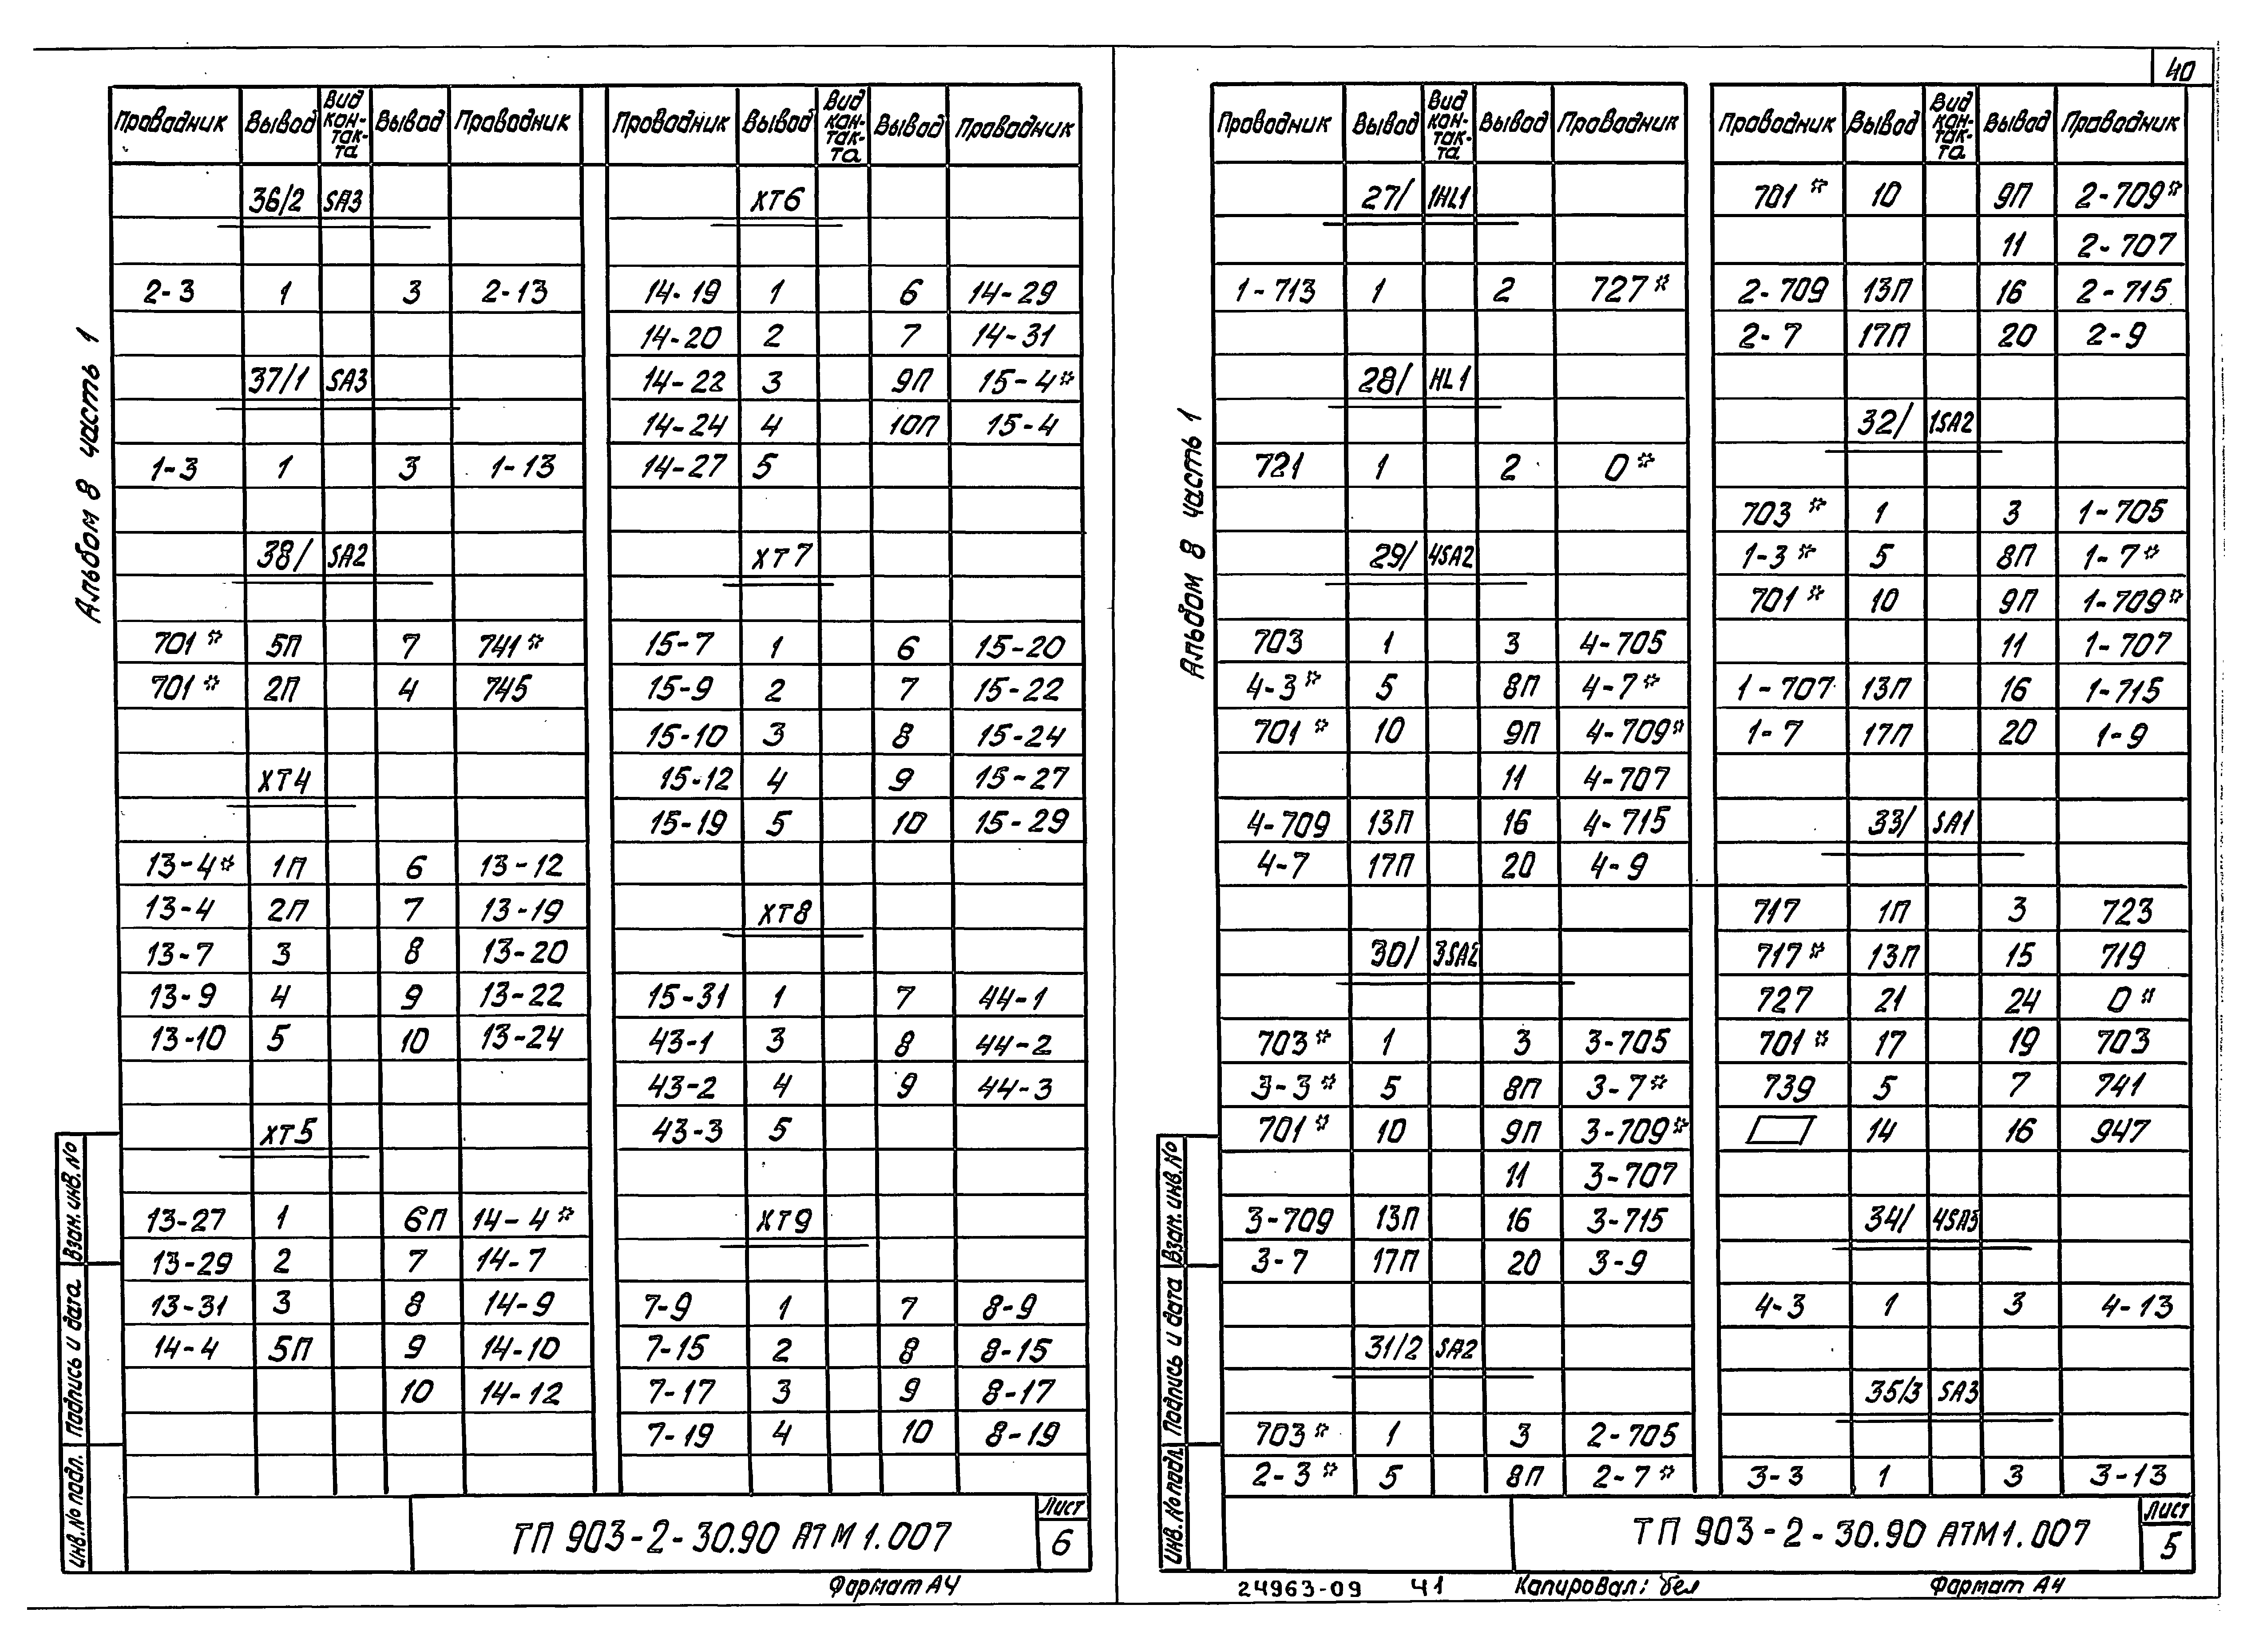 40
Альбом 8 часть 1
Проводник Вывод Вид контакта Вывод Проводник
36/2 SA3
2-3 1 3 2-13
37/1 SA3
1-3 1 3 1-13
38/ SA2
701* 5П 7 741*
701* 2П 4 745
ХТ4
13-4* 1П 6 13-12
13-4 2П 7 13-19
13-7 3 8 13-20
13-9 4 9 13-22
13-10 5 10 13-24
ХТ5
13-27 1 6П 14-4*
13-29 2 7 14-7
13-31 3 8 14-9
14-4 5П 9 14-10
10 14-12
Проводник Вывод Вид контакта Вывод Проводник
ХТ6
14-19 1 6 14-29
14-20 2 7 14-31
14-22 3 9П 15-4*
14-24 4 10П 15-4
14-27 5
ХТ7
15-7 1 6 15-20
15-9 2 7 15-22
15-10 3 8 15-24
15-12 4 9 15-27
15-19 5 10 15-29
ХТ8
15-31 1 7 44-1
43-1 3 8 44-2
43-2 4 9 44-3
43-3 5
ХТ9
7-9 1 7 8-9
7-15 2 8 8-15
7-17 3 9 8-17
7-19 4 10 8-19
Инв.№ подл. Подпись и дата Взам.инв.№
ТП 903-2-30.90 АТМ1.007
Лист
6
Формат А4
Альбом 8 часть 1
Проводник Вывод Вид контакта Вывод Проводник
27/ 1HL1
1-713 1 2 727*
28/ HL1
721 1 2 0*
29/ 4SA2
703 1 3 4-705
4-3* 5 8П 4-7*
701* 10 9П 4-709*
11 4-707
4-709 13П 16 4-715
4-7 17П 20 4-9
30/ 3SA2
703* 1 3 3-705
3-3* 5 8П 3-7*
701* 10 9П 3-709*
11 3-707
3-709 13П 16 3-715
3-7 17П 20 3-9
31/2 SA2
703* 1 3 2-705
2-3* 5 8П 2-7*
Проводник Вывод Вид контакта Вывод Проводник
701* 10 9П 2-709*
11 2-707
2-709 13П 16 2-715
2-7 17П 20 2-9
32/ 1SA2
703* 1 3 1-705
1-3* 5 8П 1-7*
701* 10 9П 1-709*
11 1-707
1-707 13П 16 1-715
1-7 17П 20 1-9
33/ SA1
717 1П 3 723
717* 13П 15 719
727 21 24 0*
701* 17 19 703
739 5 7 741
14 16 947
34/ 4SA3
4-3 1 3 4-13
35/3 SA3
3-3 1 3 3-13
Инв.№ подл. Подпись и дата Взам.инв.№
ТП 903-2-30.90 АТМ1.007
Лист
5
24963-09 Ч1 Копировал: Бел Формат А4